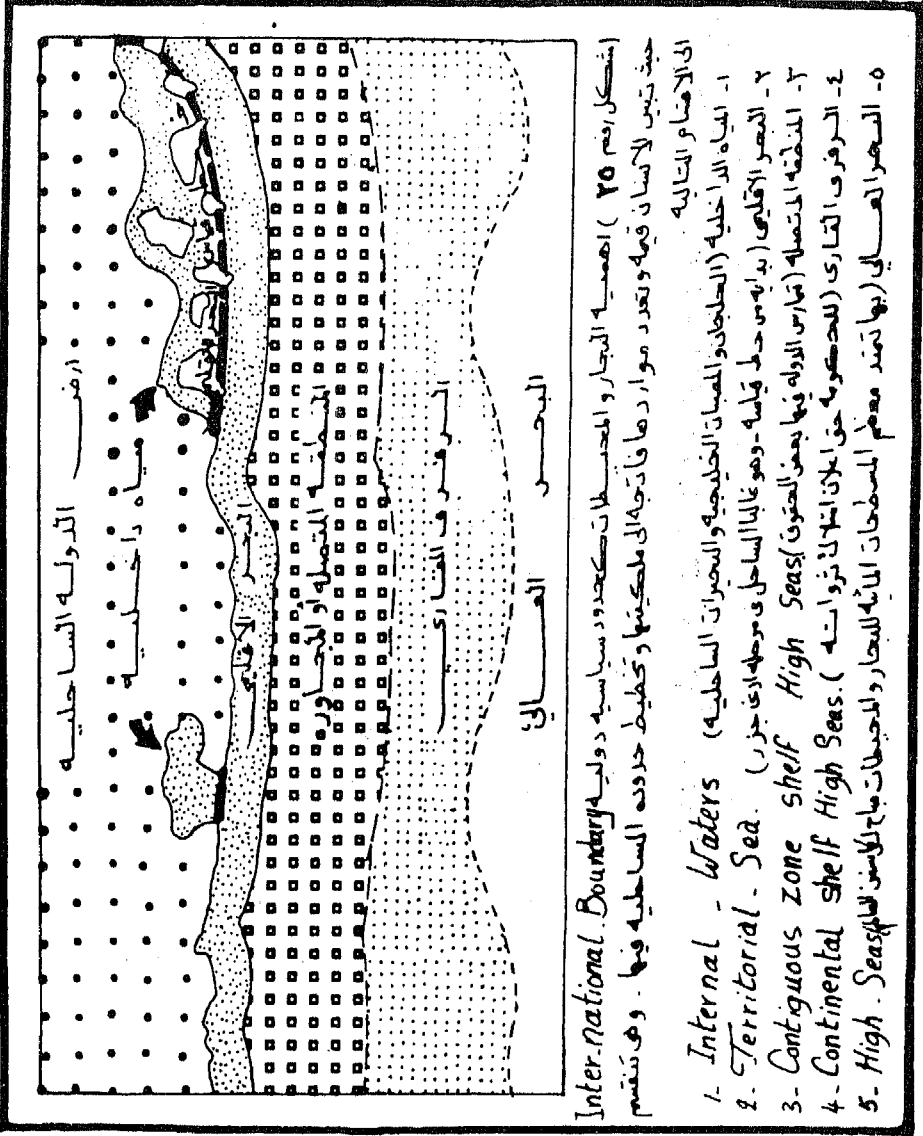 ارض الدولة الساحلية
مياه داخلية
خط قياس البحر الاقليمي
البحر الاقليمي
المنطقه المتصله أو المجاوره
الرفرف القارى
البحر العالي
(شكل رقم ٢٥) اهمية البحار والمحيطات كحدود سياسيه دوليه International Boundary
حيث تبين للانسان قيمه وتعدد مواردها فاتجه الى ملكيتها وتخطيط حدوده الساحلية فيها . وهى تنقسم
الى الاقسام التالية
١- المياه الداخلية (الخلجان والمضيات الخليجية والبحيرات الساحلية) 1- Internal - Waters
٢- البحر الاقليمى (بدايه من خط قياسه - وهو غالبا الساحل فى مرحلة ادنى جزر) 2- Territorial - Sea.
٣- المنطقه المتصله (تمارس الدوله فيها بعض الحقوق) 3- Contiguous zone shelf High Seas
٤- الرفرف القارى (للحكومة حق اعلان امتلاك ثرواته) 4- Continental shelf High Seas.
٥- البحر العالى (بها تمتد معظم المسطحات المائيه للبحار والمحيطات مباح للأسس العالم) 5- High - Seas